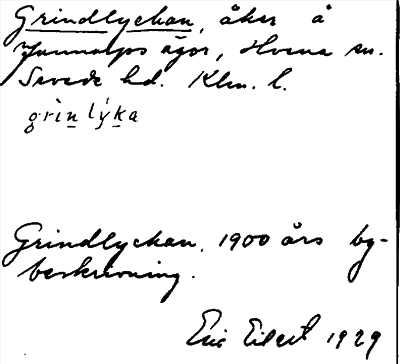 Grindlyckan, åker å
Junnarps ägor, Hvena sn.
Sevede hd. Klm. l.
grìnlýka
Grindlyckan, 1900 års by-
beskrivning.
Eric Eilert 1929